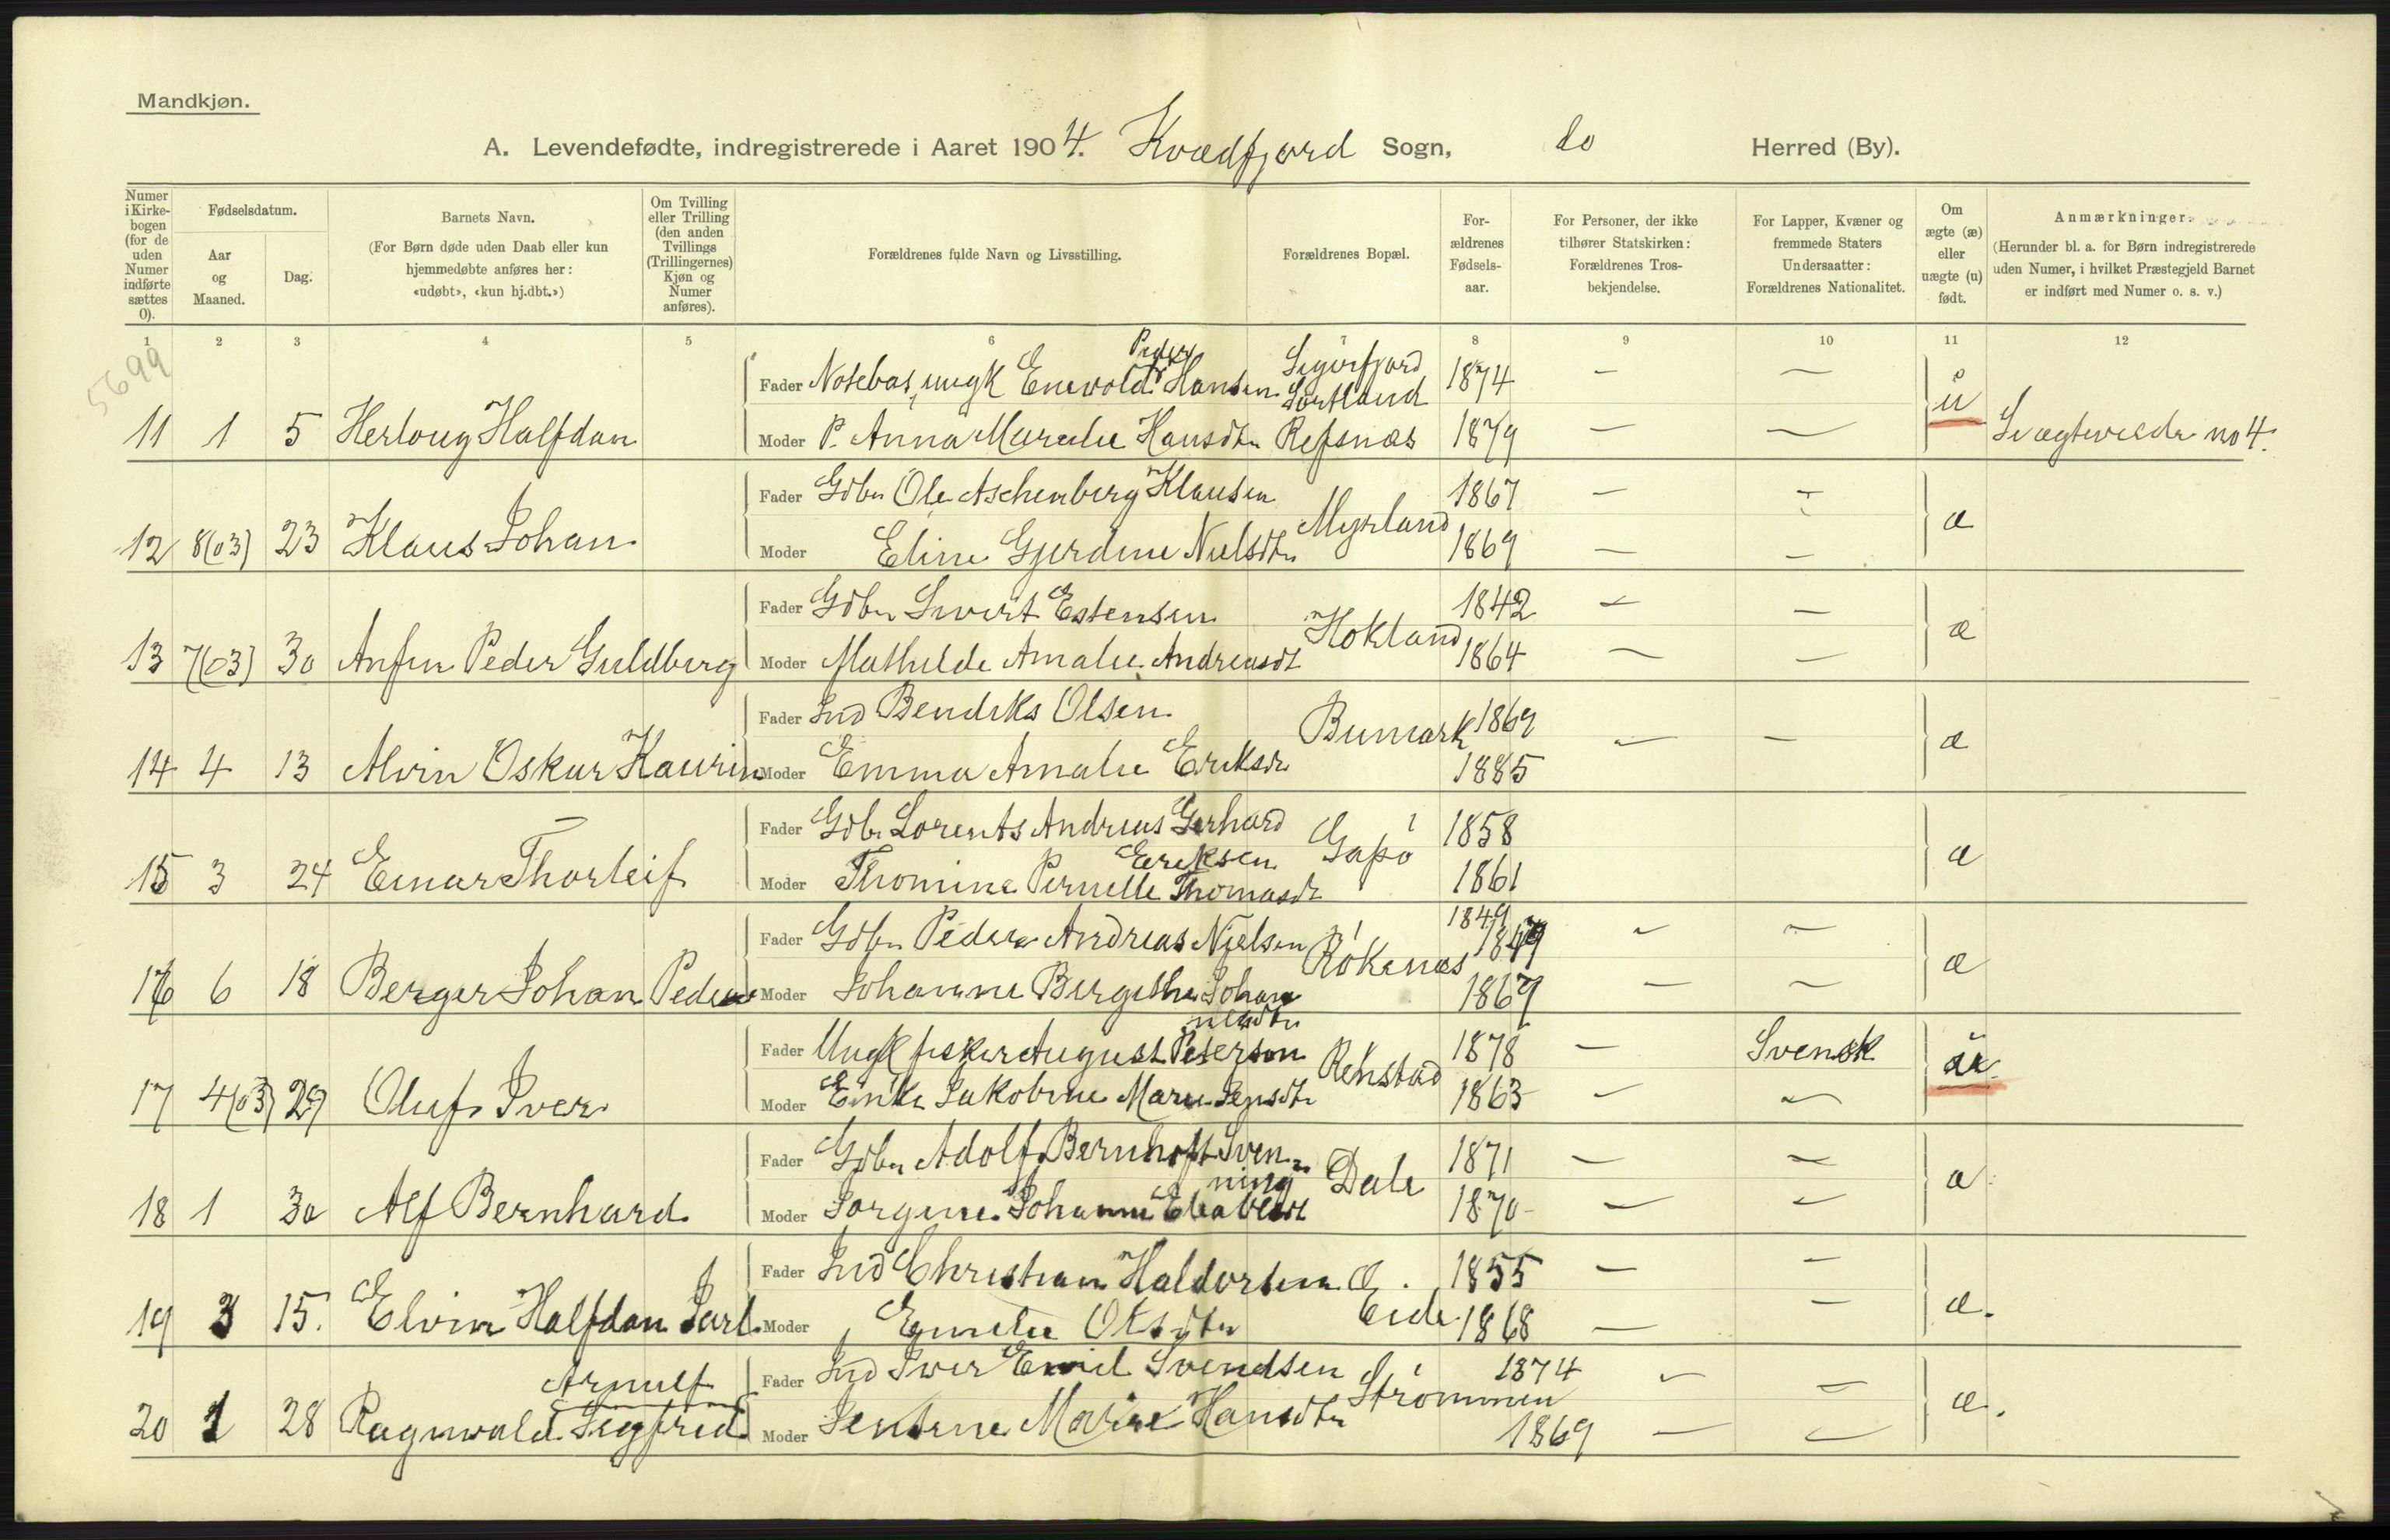 Mandkjøn.
A. Levendefødte, indregistrerede i Aaret 1904. Kvædfjord Sogn, do Herred (By).
Numer i Kirkebogen (for de uden Numer indførte sættes 0).
Fødselsdatum.
Aar og Maaned.
Dag.
Barnets Navn.
(For Børn døde uden Daab eller kun hjemmedøbte anføres her: «udøbt», «kun hj.dbt.»)
Om Tvilling eller Trilling (den anden Tvillings (Trillingernes) Kjøn og Numer anføres).
Forældrenes fulde Navn og Livsstilling.
Forældrenes Bopæl.
Forældrenes Fødselsaar.
For Personer, der ikke tilhører Statskirken: Forældrenes Trosbekjendelse.
For Lapper, Kvæner og fremmede Staters Undersaatter: Forældrenes Nationalitet.
Om ægte (æ) eller uægte (u) født.
Anmærkninger.
(Herunder bl. a. for Børn indregistrerede uden Numer, i hvilket Præstegjeld Barnet er indført med Numer o. s. v.)
1 2 3 4 5 6 7 8 9 10 11 12
5699
Fader Notebas, ungk Enevold Peder Hansen Sigerfjord Sortland 1874 — —
11 1 5 Herloug Halfdan Moder P. Anna Maralie Hansdtr Refsnæs 1879 — — u no 4.
Fader Gdbr Ole Aschenberg Klausen Myrland 1867 — —
12 8(03) 23 Klaus Johan Moder Eline Gjerdine Nielsdtr 1869 — — æ
Fader Gdbr Sivert Estensen Hokland 1842 — —
13 7(03) 30 Anfin Peder Guldberg Moder Mathilde Amalie Andreasdt 1864 — — æ
Fader Ind Bendiks Olsen Bumark 1869
14 4 13 Alvin Oskar Kaurin Moder Emma Amalie Eriksdr 1885 — — æ
Fader Gdbr Lorents Andreas Gerhard Eriksen Gapø 1858
15 3 24 Einar Thorleif Moder Thomine Pernelle Thomasdt 1861 æ
Fader Gdbr Peder Andreas Nielsen Røkenæs 1849 1849 — —
16 6 18 Berger Johan Peder Moder Johanne Bergithe Johannesdtr 1869 — — æ
Fader Ungk fisker August Peterson Rehstad 1878 — Svensk
17 4(03) 29 Oluf Iver Moder Enke Jakobine Marie Jensdtr 1863 — — u
Fader Gdbr Adolf Bernhoft Svenning Dale 1871 — —
18 1 30 Alf Bernhard Moder Jorgine Johanne 1870 — — æ
Fader Ind Christian Haldorsen Eide 1855 — —
19 3 15. Elvin Halfdan Jarl Moder Emelie Olsdtr 1868 — — æ.
Fader Ind Iver Emil Svendsen Strømmen 1874 — —
Arnulf
20 1 28 Ragnvald Sigfred Moder Jensine Marie Hansdtr 1869 — — æ.